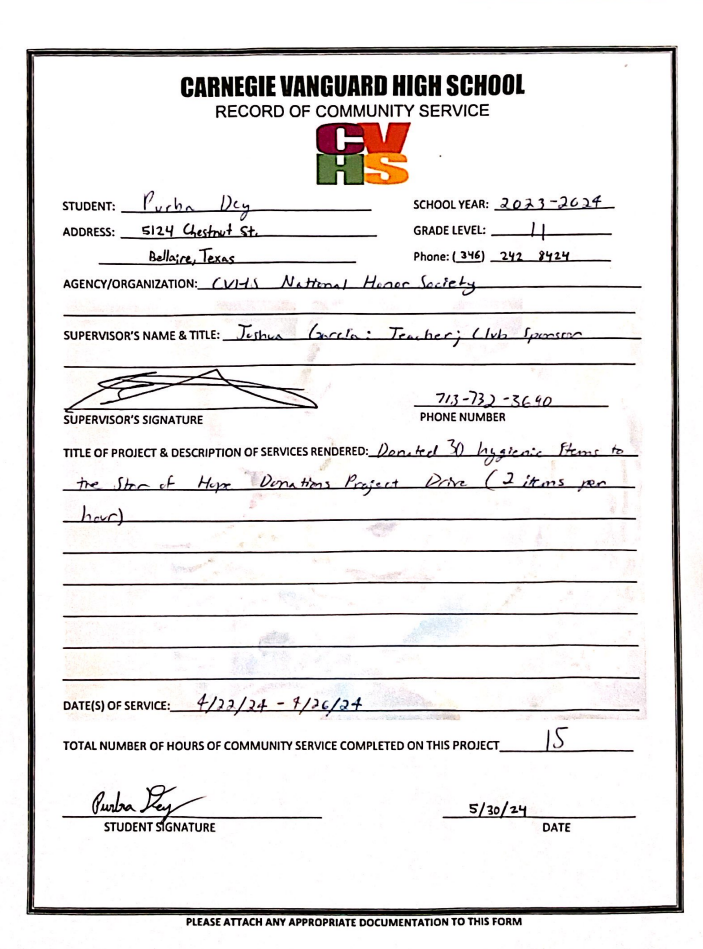 CARNEGIE VANGUARD HIGH SCHOOL
RECORD OF COMMUNITY SERVICE
CV
HS
STUDENT: Purba Dey SCHOOL YEAR: 2023-2024
ADDRESS: 5124 Chestnut St. GRADE LEVEL: 11
Bellaire, Texas Phone: (346) 242 8424
AGENCY/ORGANIZATION: CVHS National Honor Society
SUPERVISOR'S NAME & TITLE: Joshua Garcia: Teacher; Club Sponsor
713-732-3690
SUPERVISOR'S SIGNATURE PHONE NUMBER
TITLE OF PROJECT & DESCRIPTION OF SERVICES RENDERED: Donated 30 hygienic items to
the Star of Hope Donations Project Drive (2 items per
hour)
DATE(S) OF SERVICE: 4/22/24 - 4/26/24
TOTAL NUMBER OF HOURS OF COMMUNITY SERVICE COMPLETED ON THIS PROJECT 15
Purba Dey 5/30/24
STUDENT SIGNATURE DATE
PLEASE ATTACH ANY APPROPRIATE DOCUMENTATION TO THIS FORM